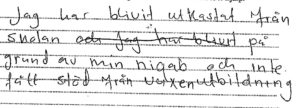 Jag har blivit utkastat från
skolan och jag har blivit på
grund av min niqab och inte
fått stöd från vuxenutbildning